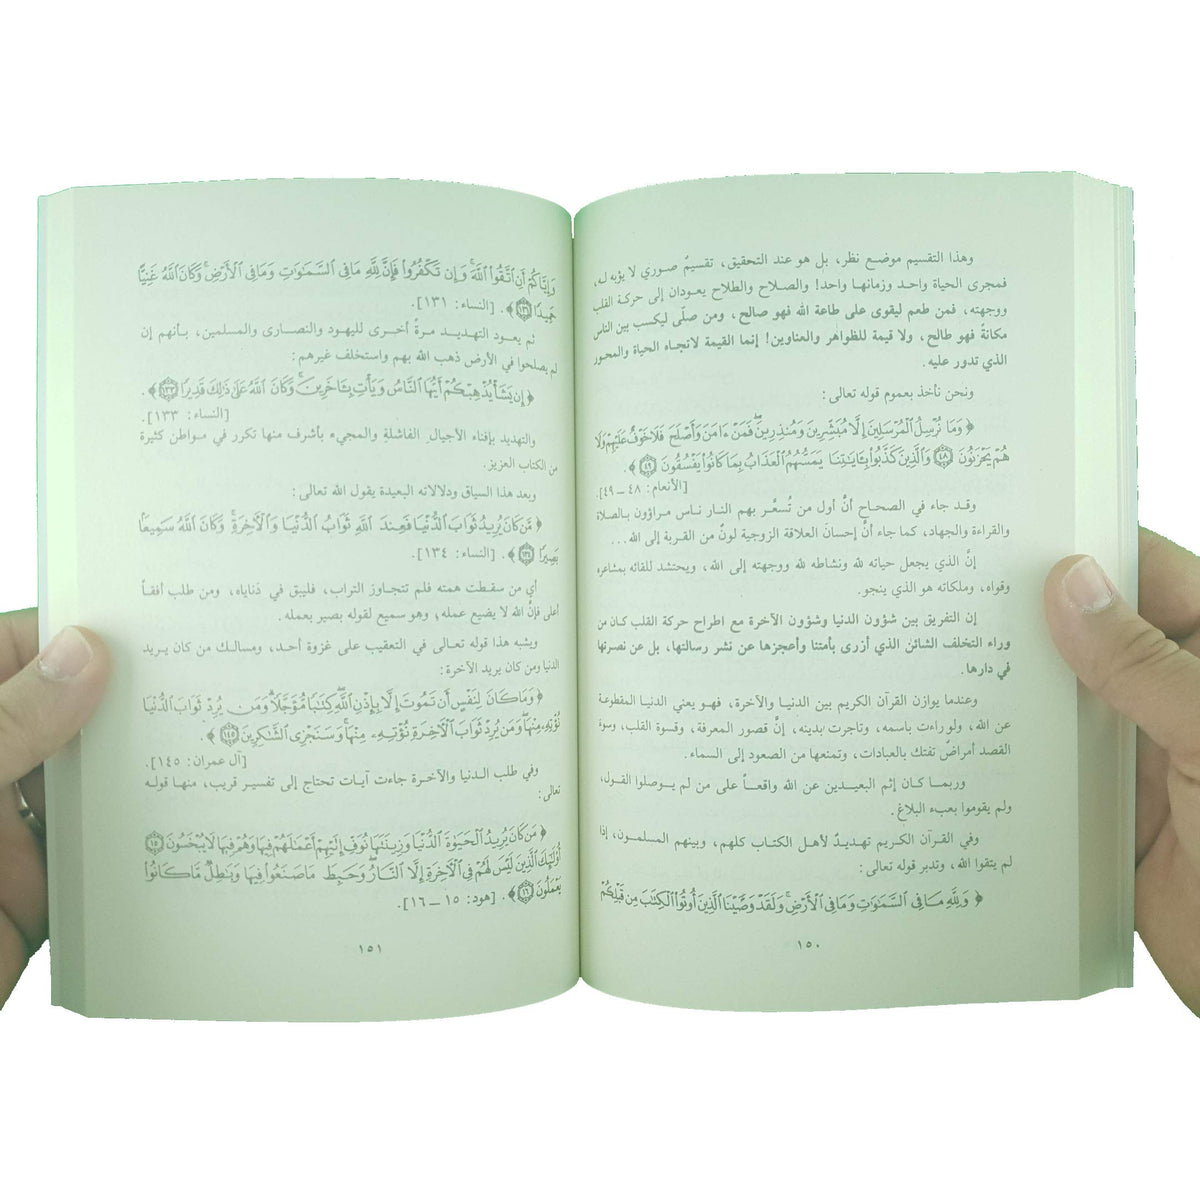 وهذا التقسيم موضع نظر، بل هو عند التحقيق، تقسيمٌ صوري لا يؤبه له،
فمجرى الحياة واحد وزمانها واحد! والصلاح والطلاح يعودان إلى حركة القلب
ووجهته، فمن طعم ليقوى على طاعة الله فهو صالح، ومن صلّى ليكسب بين الناس
مكانةً فهو طالح، ولا قيمة للظواهر والعناوين! إنما القيمة لاتجاه الحياة والمحور
الذي تدور عليه.
ونحن نأخذ بعموم قوله تعالى:
﴿ وَمَا نُرْسِلُ ٱلْمُرْسَلِينَ إِلَّا مُبَشِّرِينَ وَمُنذِرِينَ ۖ فَمَنْ ءَامَنَ وَأَصْلَحَ فَلَا خَوْفٌ عَلَيْهِمْ وَلَا
هُمْ يَحْزَنُونَ ٤٨ وَٱلَّذِينَ كَذَّبُوا۟ بِـَٔايَـٰتِنَا يَمَسُّهُمُ ٱلْعَذَابُ بِمَا كَانُوا۟ يَفْسُقُونَ ٤٩ ﴾
[الأنعام: ٤٨ ـ ٤٩].
وقد جاء في الصحاح أنَّ أول من تُسعَّر بهم النار ناس مراؤون بالصلاة
والقراءة والجهاد، كما جاء أنَّ إحسانَ العلاقة الزوجية لونٌ من القربة إلى الله...
إنَّ الذي يجعل حياته لله ونشاطه لله ووجهته إلى الله، ويحتشد للقائه بمشاعره
وقواه، وملكاته هو الذي ينجو.
إن التفريق بين شؤون الدنيا وشؤون الآخرة مع اطراح حركة القلب كان من
وراء التخلف الشائن الذي أزرى بأمتنا وأعجزها عن نشر رسالتها، بل عن نصرتها
في دارها.
وعندما يوازن القرآن الكريم بين الدنيا والآخرة، فهو يعني الدنيا المقطوعة
عن الله، ولو راءت باسمه، وتاجرت بدينه، إنَّ قصور المعرفة، وقسوة القلب، وسوء
القصد أمراضٌ تفتك بالعبادات، وتمنعها من الصعود إلى السماء.
وربما كان إثم البعيدين عن الله واقعاً على من لم يوصلوا القول،
ولم يقوموا بعبء البلاغ.
وفي القرآن الكريم تهديدٌ لأهل الكتاب كلهم، وبينهم المسلمون، إذا
لم يتقوا الله، وتدبر قوله تعالى:
﴿ وَلِلَّهِ مَا فِى ٱلسَّمَـٰوَٰتِ وَمَا فِى ٱلْأَرْضِ ۗ وَلَقَدْ وَصَّيْنَا ٱلَّذِينَ أُوتُوا۟ ٱلْكِتَـٰبَ مِن قَبْلِكُمْ
١٥٠
وَإِيَّاكُمْ أَنِ ٱتَّقُوا۟ ٱللَّهَ ۚ وَإِن تَكْفُرُوا۟ فَإِنَّ لِلَّهِ مَا فِى ٱلسَّمَـٰوَٰتِ وَمَا فِى ٱلْأَرْضِ ۚ وَكَانَ ٱللَّهُ غَنِيًّا
حَمِيدًا ١٣١ ﴾. [النساء: ١٣١].
ثم يعود التهديد مرةً أخرى لليهود والنصارى والمسلمين، بأنهم إن
لم يصلحوا في الأرض ذهب الله بهم واستخلف غيرهم:
﴿ إِن يَشَأْ يُذْهِبْكُمْ أَيُّهَا ٱلنَّاسُ وَيَأْتِ بِـَٔاخَرِينَ ۚ وَكَانَ ٱللَّهُ عَلَىٰ ذَٰلِكَ قَدِيرًا ١٣٣ ﴾ .
[النساء: ١٣٣].
والتهديد بإفناء الأجيال الفاشلةِ والمجيء بأشرف منها تكرر في مواطن كثيرة
من الكتاب العزيز.
وبعد هذا السياق ودلالاته البعيدة يقول الله تعالى:
﴿ مَّن كَانَ يُرِيدُ ثَوَابَ ٱلدُّنْيَا فَعِندَ ٱللَّهِ ثَوَابُ ٱلدُّنْيَا وَٱلْـَٔاخِرَةِ ۚ وَكَانَ ٱللَّهُ سَمِيعًۢا
بَصِيرًا ١٣٤ ﴾ . [النساء: ١٣٤].
أي من سقطت همته فلم تتجاوز التراب، فليبق في ذناياه، ومن طلب أفقاً
أعلى فإنَّ الله لا يضيع عمله، وهو سميع لقوله بصير بعمله.
ويشبه هذا قوله تعالى في التعقيب على غزوة أحد، ومسالك من كان يريد
الدنيا ومن كان يريد الآخرة:
﴿ وَمَا كَانَ لِنَفْسٍ أَن تَمُوتَ إِلَّا بِإِذْنِ ٱللَّهِ كِتَـٰبًا مُّؤَجَّلًا ۗ وَمَن يُرِدْ ثَوَابَ ٱلدُّنْيَا
نُؤْتِهِۦ مِنْهَا وَمَن يُرِدْ ثَوَابَ ٱلْـَٔاخِرَةِ نُؤْتِهِۦ مِنْهَا ۚ وَسَنَجْزِى ٱلشَّـٰكِرِينَ ١٤٥ ﴾ .
[آل عمران: ١٤٥].
وفي طلب الدنيا والآخرة جاءت آيات تحتاج إلى تفسير قريب، منها قوله
تعالى:
﴿ مَن كَانَ يُرِيدُ ٱلْحَيَوٰةَ ٱلدُّنْيَا وَزِينَتَهَا نُوَفِّ إِلَيْهِمْ أَعْمَـٰلَهُمْ فِيهَا وَهُمْ فِيهَا لَا يُبْخَسُونَ ١٥
أُو۟لَـٰٓئِكَ ٱلَّذِينَ لَيْسَ لَهُمْ فِى ٱلْـَٔاخِرَةِ إِلَّا ٱلنَّارُ ۖ وَحَبِطَ مَا صَنَعُوا۟ فِيهَا وَبَـٰطِلٌ مَّا كَانُوا۟
يَعْمَلُونَ ١٦ ﴾ . [هود: ١٥ ـ ١٦].
١٥١